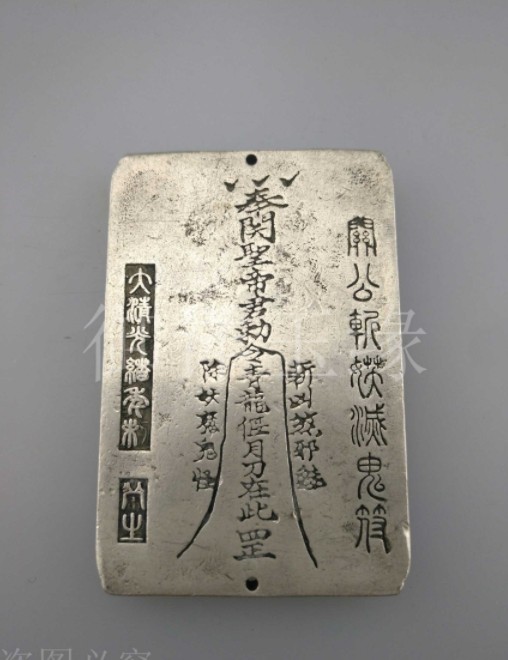 關公斬妖滅鬼符
奉関聖帝君勅令青龍偃月刀在此罡
斬凶煞邪
除妖鬼怪
大清光緒年制
缘
盗图必究